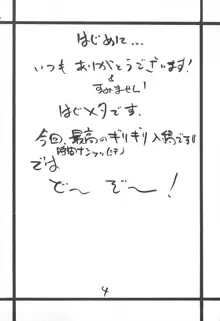 はじめに…
いつもありがとうございます!
&
すみません!
はじメタです.
今回、最高のギリギリ入稿です!!
では
ど〜ぞ〜!
4